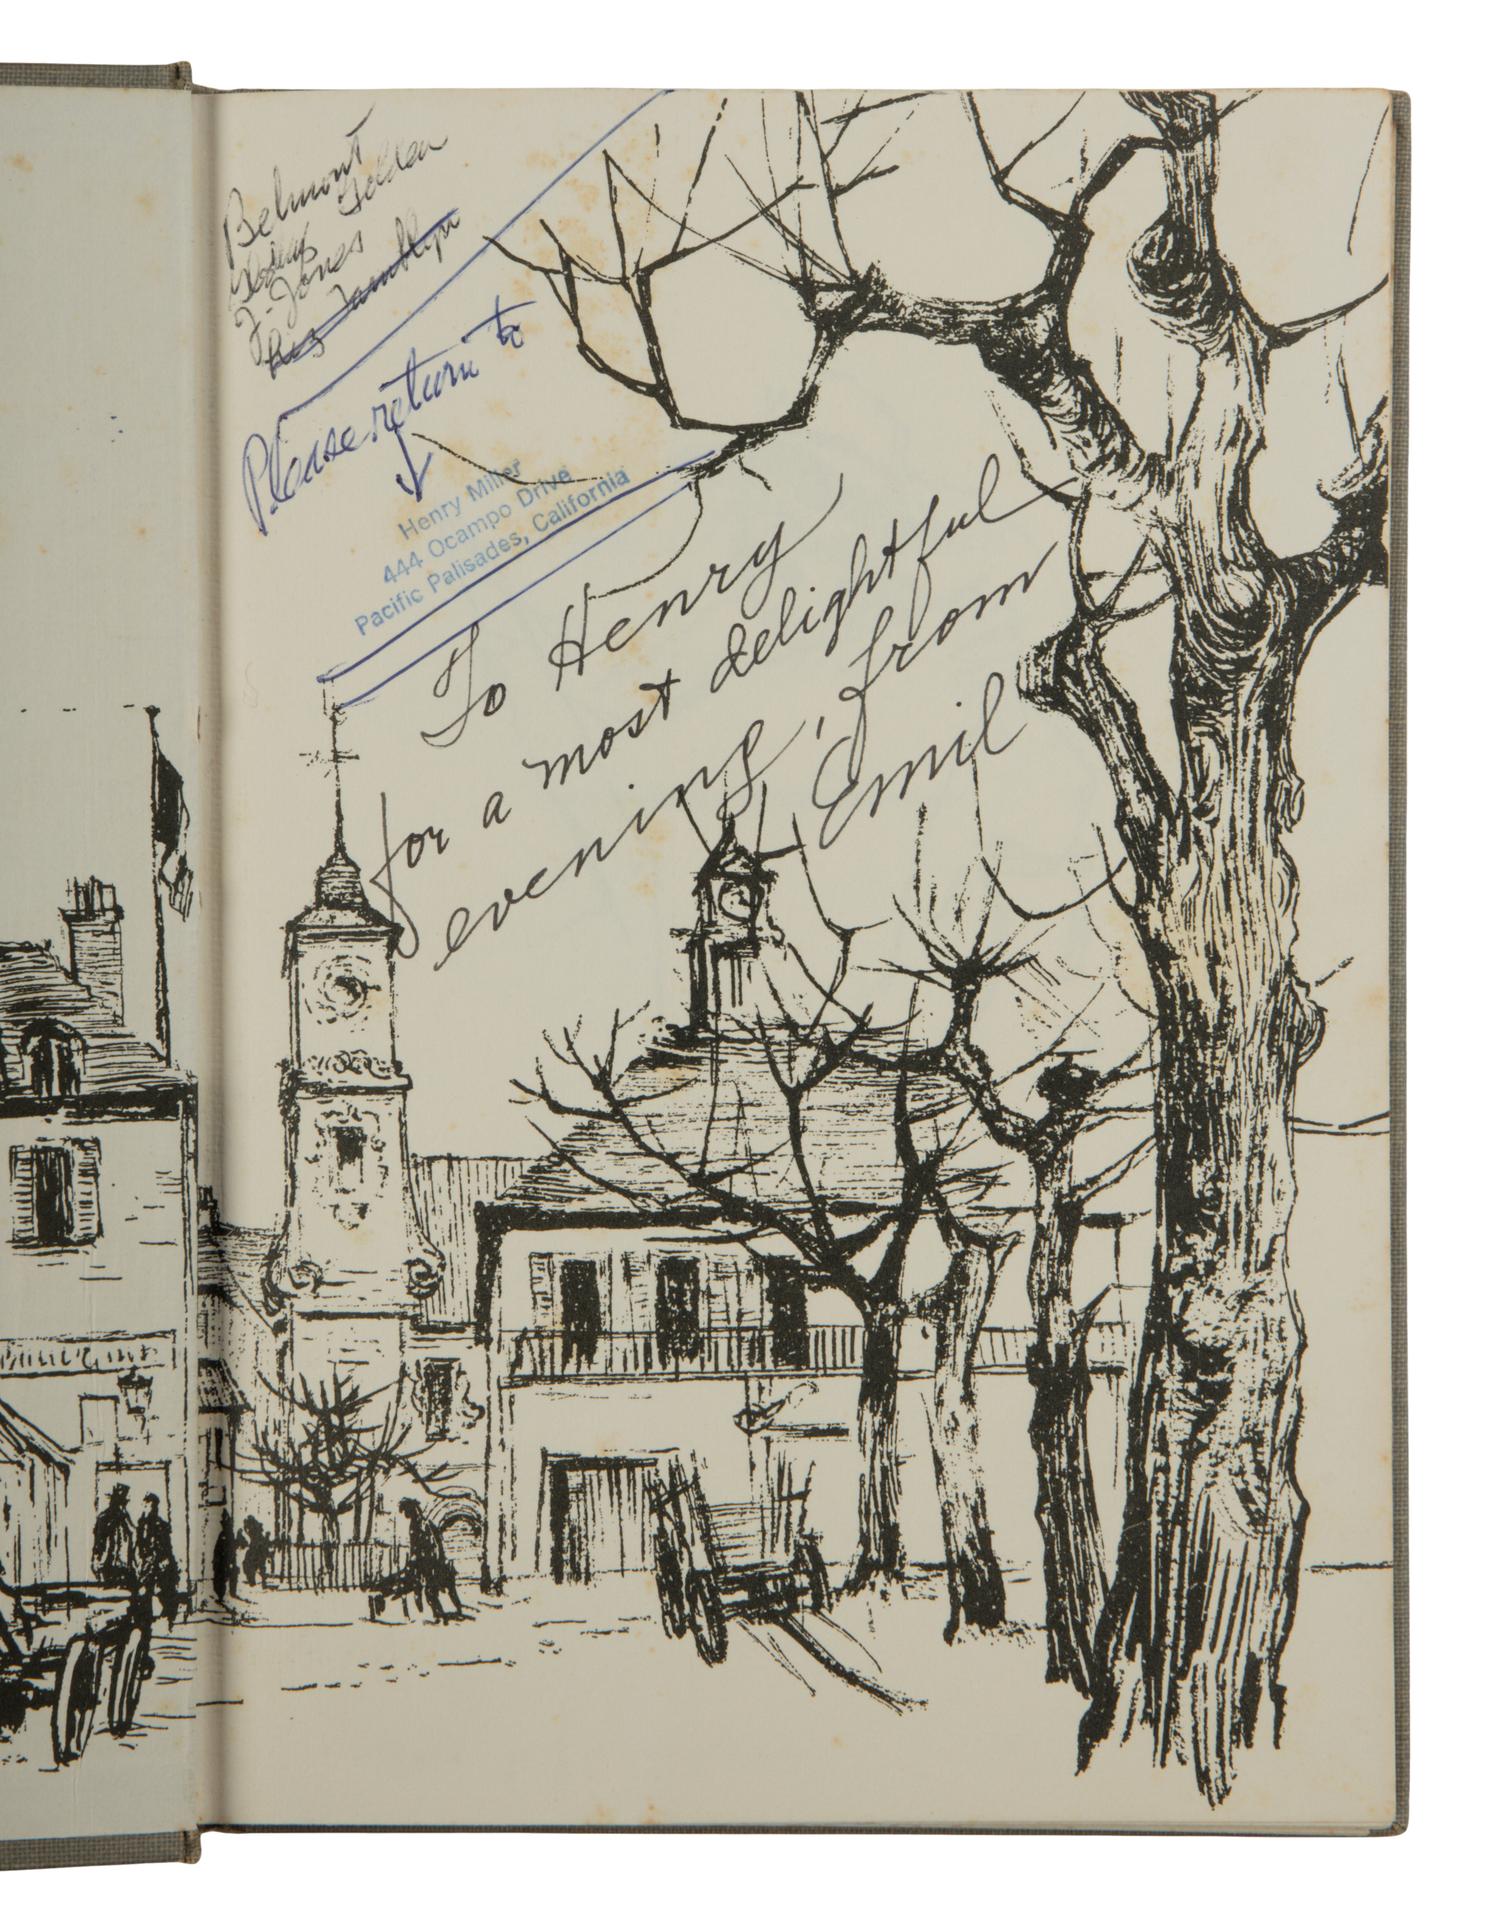 Belmont
Golden
F. Jones
Tamblyn
Please return to
Henry Miller
444 Ocampo Drive
Pacific Palisades, California
To Henry
for a most delightful
evening, from
Emil